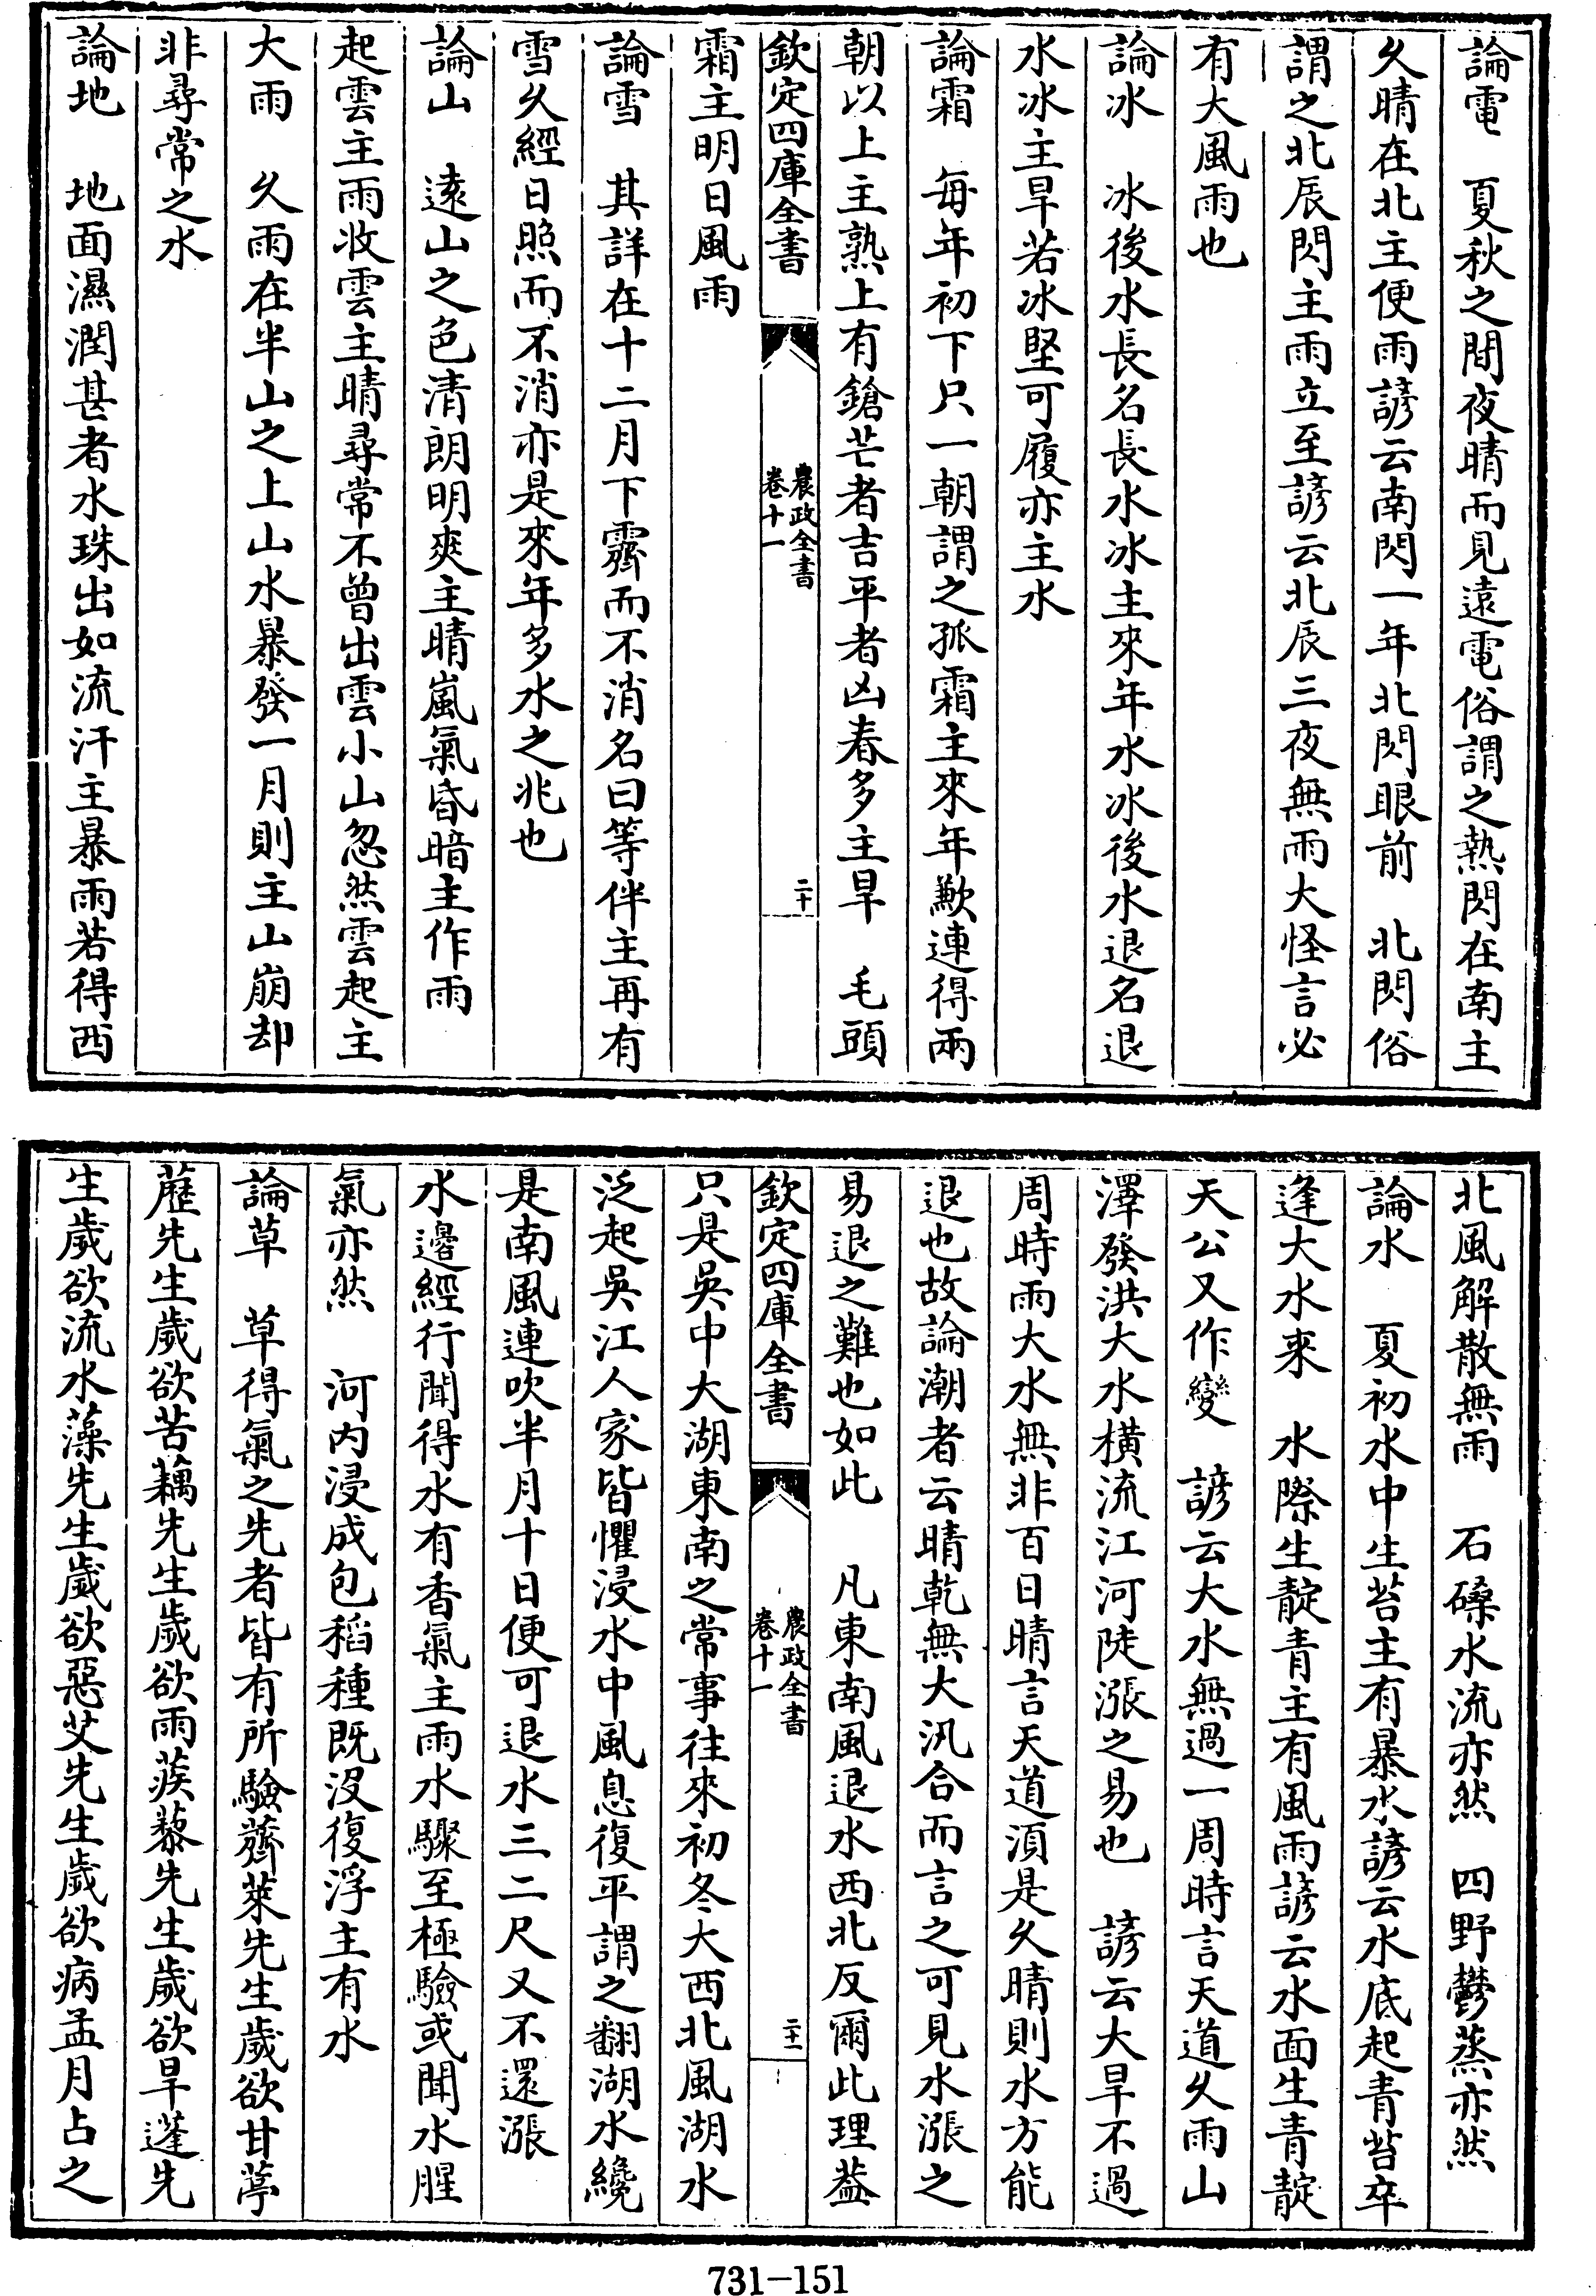 論電　夏秋之間夜晴而見遠電俗謂之熱閃在南主
久晴在北主便雨諺云南閃一年北閃眼前　北閃俗
謂之北辰閃主雨立至諺云北辰三夜無雨大怪言必
有大風雨也
論冰　冰後水長名長水冰主來年水冰後水退名退
水冰主旱若冰堅可履亦主水
論霜　每年初下只一朝謂之孤霜主來年歉連得兩
朝以上主熟上有鎗芒者吉平者凶春多主旱　毛頭
欽定四庫全書　農政全書　卷十一　二十
霜主明日風雨
論雪　其詳在十二月下霽而不消名曰等伴主再有
雪久經日照而不消亦是來年多水之兆也
論山　遠山之色清朗明爽主晴嵐氣昏暗主作雨
起雲主雨收雲主晴尋常不曾出雲小山忽然雲起主
大雨　久雨在半山之上山水暴發一月則主山崩却
非尋常之水
論地　地面濕潤甚者水珠出如流汗主暴雨若得西
北風解散無雨　石磉水流亦然　四野鬱蒸亦然
論水　夏初水中生苔主有暴水諺云水底起青苔卒
逢大水來　水際生靛青主有風雨諺云水面生青靛
天公又作變　諺云大水無過一周時言天道久雨山
澤發洪大水橫流江河陡漲之易也　諺云大旱不過
周時雨大水無非百日晴言天道湏是久晴則水方能
退也故論潮者云晴乾無大汛合而言之可見水漲之
易退之難也如此　凡東南風退水西北反爾此理葢
欽定四庫全書　農政全書　卷十一　二十一
只是吳中大湖東南之常事往來初冬大西北風湖水
泛起吳江人家皆懼浸水中風息復平謂之翻湖水纔
是南風連吹半月十日便可退水三二尺又不還漲
水邊經行聞得水有香氣主雨水驟至極驗或聞水腥
氣亦然　河內浸成包稻種既沒復浮主有水
論草　草得氣之先者皆有所驗薺菜先生歲欲甘葶
藶先生歲欲苦藕先生歲欲雨蒺藜先生歲欲旱蓬先
生歲欲流水藻先生歲欲惡艾先生歲欲病孟月占之
731-151